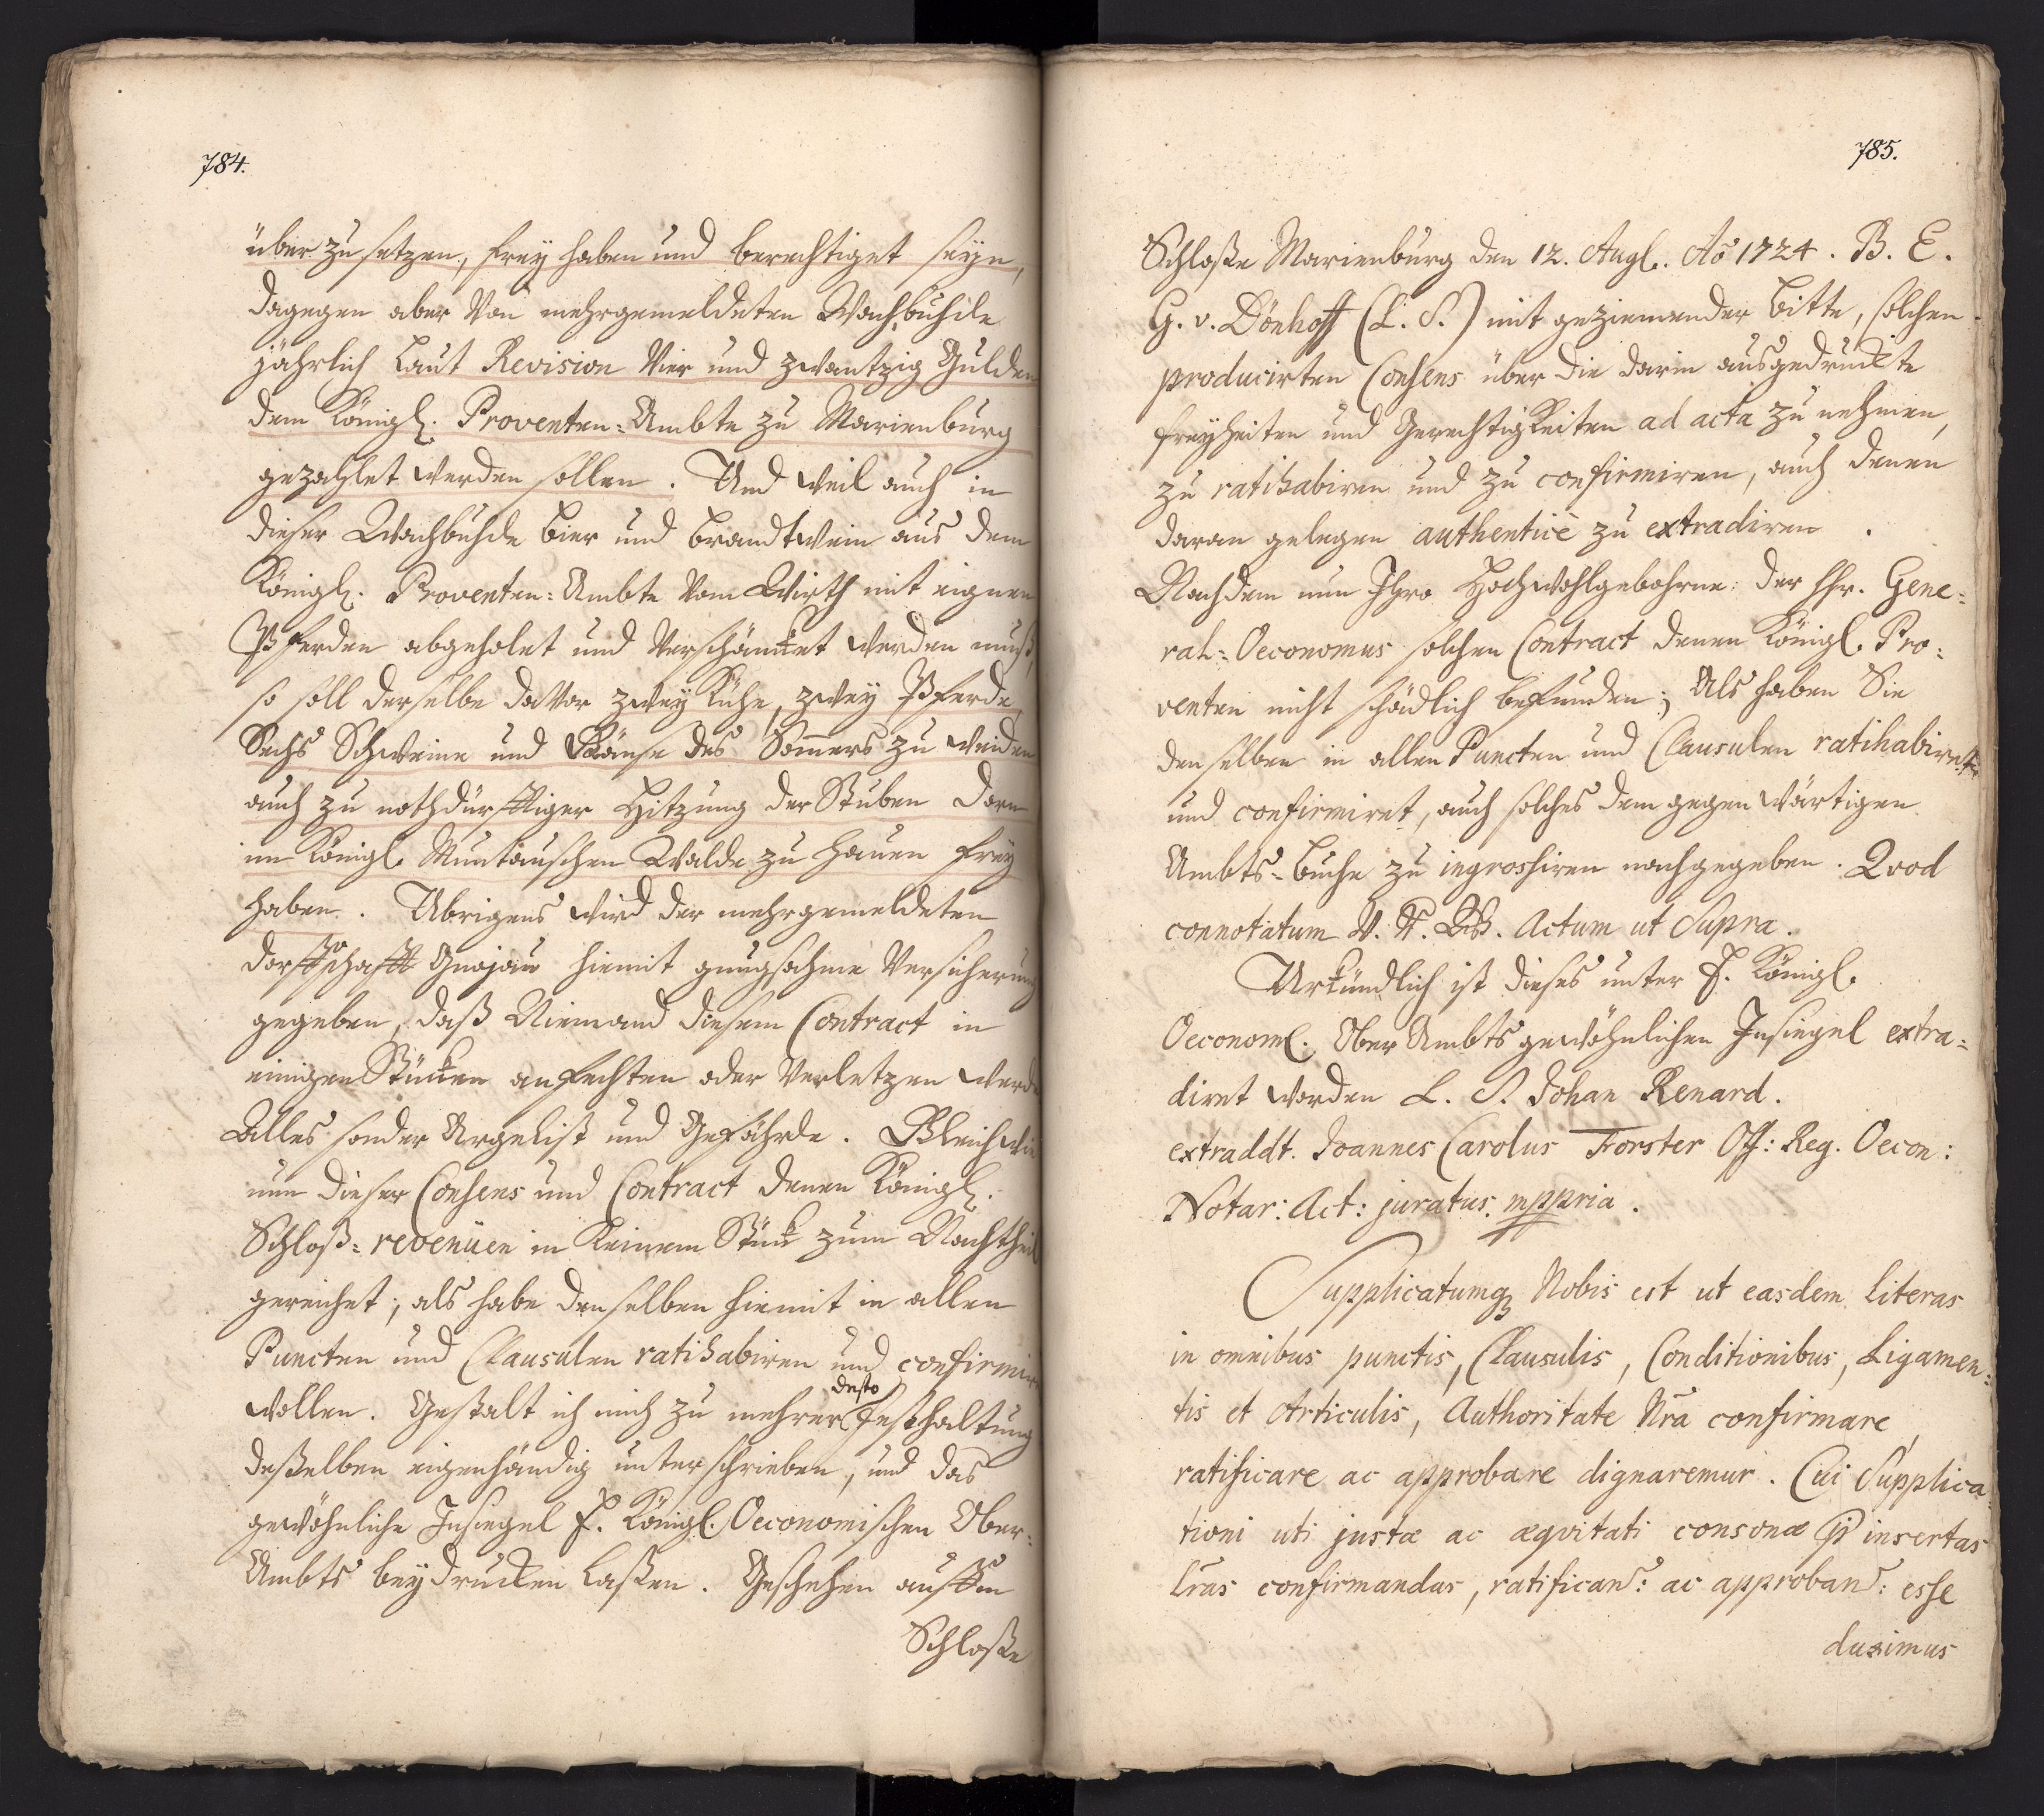 784.
über zu setzen, frey haben und berechtiget seyn,
dagegen aber von mehrgemeldeten Wachbuhde
jährlich laut Revision Vier und zwantzig Gulden
dem Königl. Proventen-Ambte zu Marienburg
gezahlet werden sollen. Und weil auch in
dieser Wachbuhde Bier und Brandtwein aus dem
Königl. Proventen-Ambte vom Wirth mit eignen
Pferden abgeholet und verschäncket werden muß,
so soll derselbe davor zwey Kühe, zwey Pferde
Sechs Schweine und Gänse des Sommers zu weiden
auch zu nothdürfftiger Hitzung der Stuben Dorn
im Königl. Muntauschen Walde zu hauen frey
haben. Ubrigens wird der mehrgemeldeten
Dorffschafft Gnojau hiemit gnugsahme Versicherung
gegeben, daß Niemand diesem Contract in
einigen Stücken anfechten oder verletzen werde
Alles sonder Argelist und Gefährde. Gleichwie
nun dieser Consens und Contract denen Königl.
Schloß-revenüen in keinem Stück zum Nachtheil
gereichet; als habe denselben hiemit in allen
Puncten und Clausulen ratihabiren und confirmiren
wollen. Gestalt ich mich zu mehrer desto Festhaltung
deßelben eigenhändig unterschrieben, und das
gewöhnliche Insiegel E. Königl. Oeconomischen Ober-
Ambts beydrucken laßen. Geschehen auffm
Schloße
785.
Schloße Marienburg den 12. Augl. Aō 1724. B. E.
G. v. Dönhoff (L. S.) mit geziemender Bitte, solchen
producirten Consens über die darin ausgedruckte
Freyheiten und Gerechtigkeiten ad acta zu nehmen,
zu ratihabiren und zu confirmiren, auch denen
daran gelegen authenticè zu extradiren.
Nachdem nun Ihro Hochwohlgebohrne: der Hr. Gene-
ral-Oeconomus solchen Contract denen Königl. Pro-
venten nicht schädlich befunden; Als haben Sie
denselben in allen Puncten und Clausulen ratihabiret
und confirmiret, auch solches dem gegenwärtigen
Ambts-Buche zu ingrossiren nachgegeben. Qvod
connotatum V. R. W. Actum ut Supra.
Urkündlich ist dieses unter E. Königl.
Oeconoml. Ober Ambts gewöhnlichen Insiegel extra-
diret worden L. S. Johan Renard.
extraddt. Joannes Carolus Forster Off: Reg. Oecon:
Notar: Act: juratus. mppria.
Supplicatumq₃ Nobis est ut easdem Literas
in omnibus punctis, Clausulis, Conditionibus, Ligamen-
tis et Articulis, Authoritate Nr̄a confirmare,
ratificare ac approbare dignaremur. Cui Supplica-
tioni uti justæ ac æqvitati consonæ insertas
Lr̄as confirmandas, ratificand: ac approband: esse
duximus